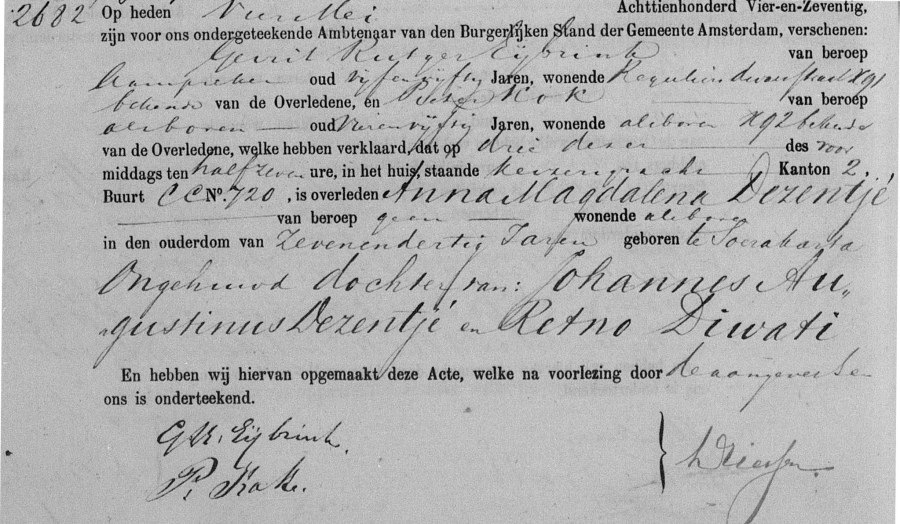 2682 Op heden Vier Mei Achttienhonderd Vier-en-Zeventig,
zijn voor ons ondergeteekende Ambtenaar van den Burgerlijken Stand der Gemeente Amsterdam, verschenen:
Gerrit Rutger Eijbrink van beroep
Aanspreker oud vijfenvijftig Jaren, wonende Reguliersdwarsstraat N91
bekende van de Overledene, en Pieter Kok van beroep
alsboven oud Vierenvijftig Jaren, wonende alsboven N92 bekende
van de Overledene, welke hebben verklaard, dat op drie dezer des voor
middags ten half zeven ure, in het huis, staande Keizersgracht Kanton 2.
Buurt CC No. 720, is overleden Anna Magdalena Dezentjé
van beroep geen wonende alsboven
in den ouderdom van Zevenendertig Jaren geboren te Soerakarta
Ongehuwd dochter van: Johannes Au„
„gustinus Dezentjé en Retno Diwati
En hebben wij hiervan opgemaakt deze Acte, welke na voorlezing door de aangevers en
ons is onderteekend.
G.R. Eijbrink.
P. Kok.